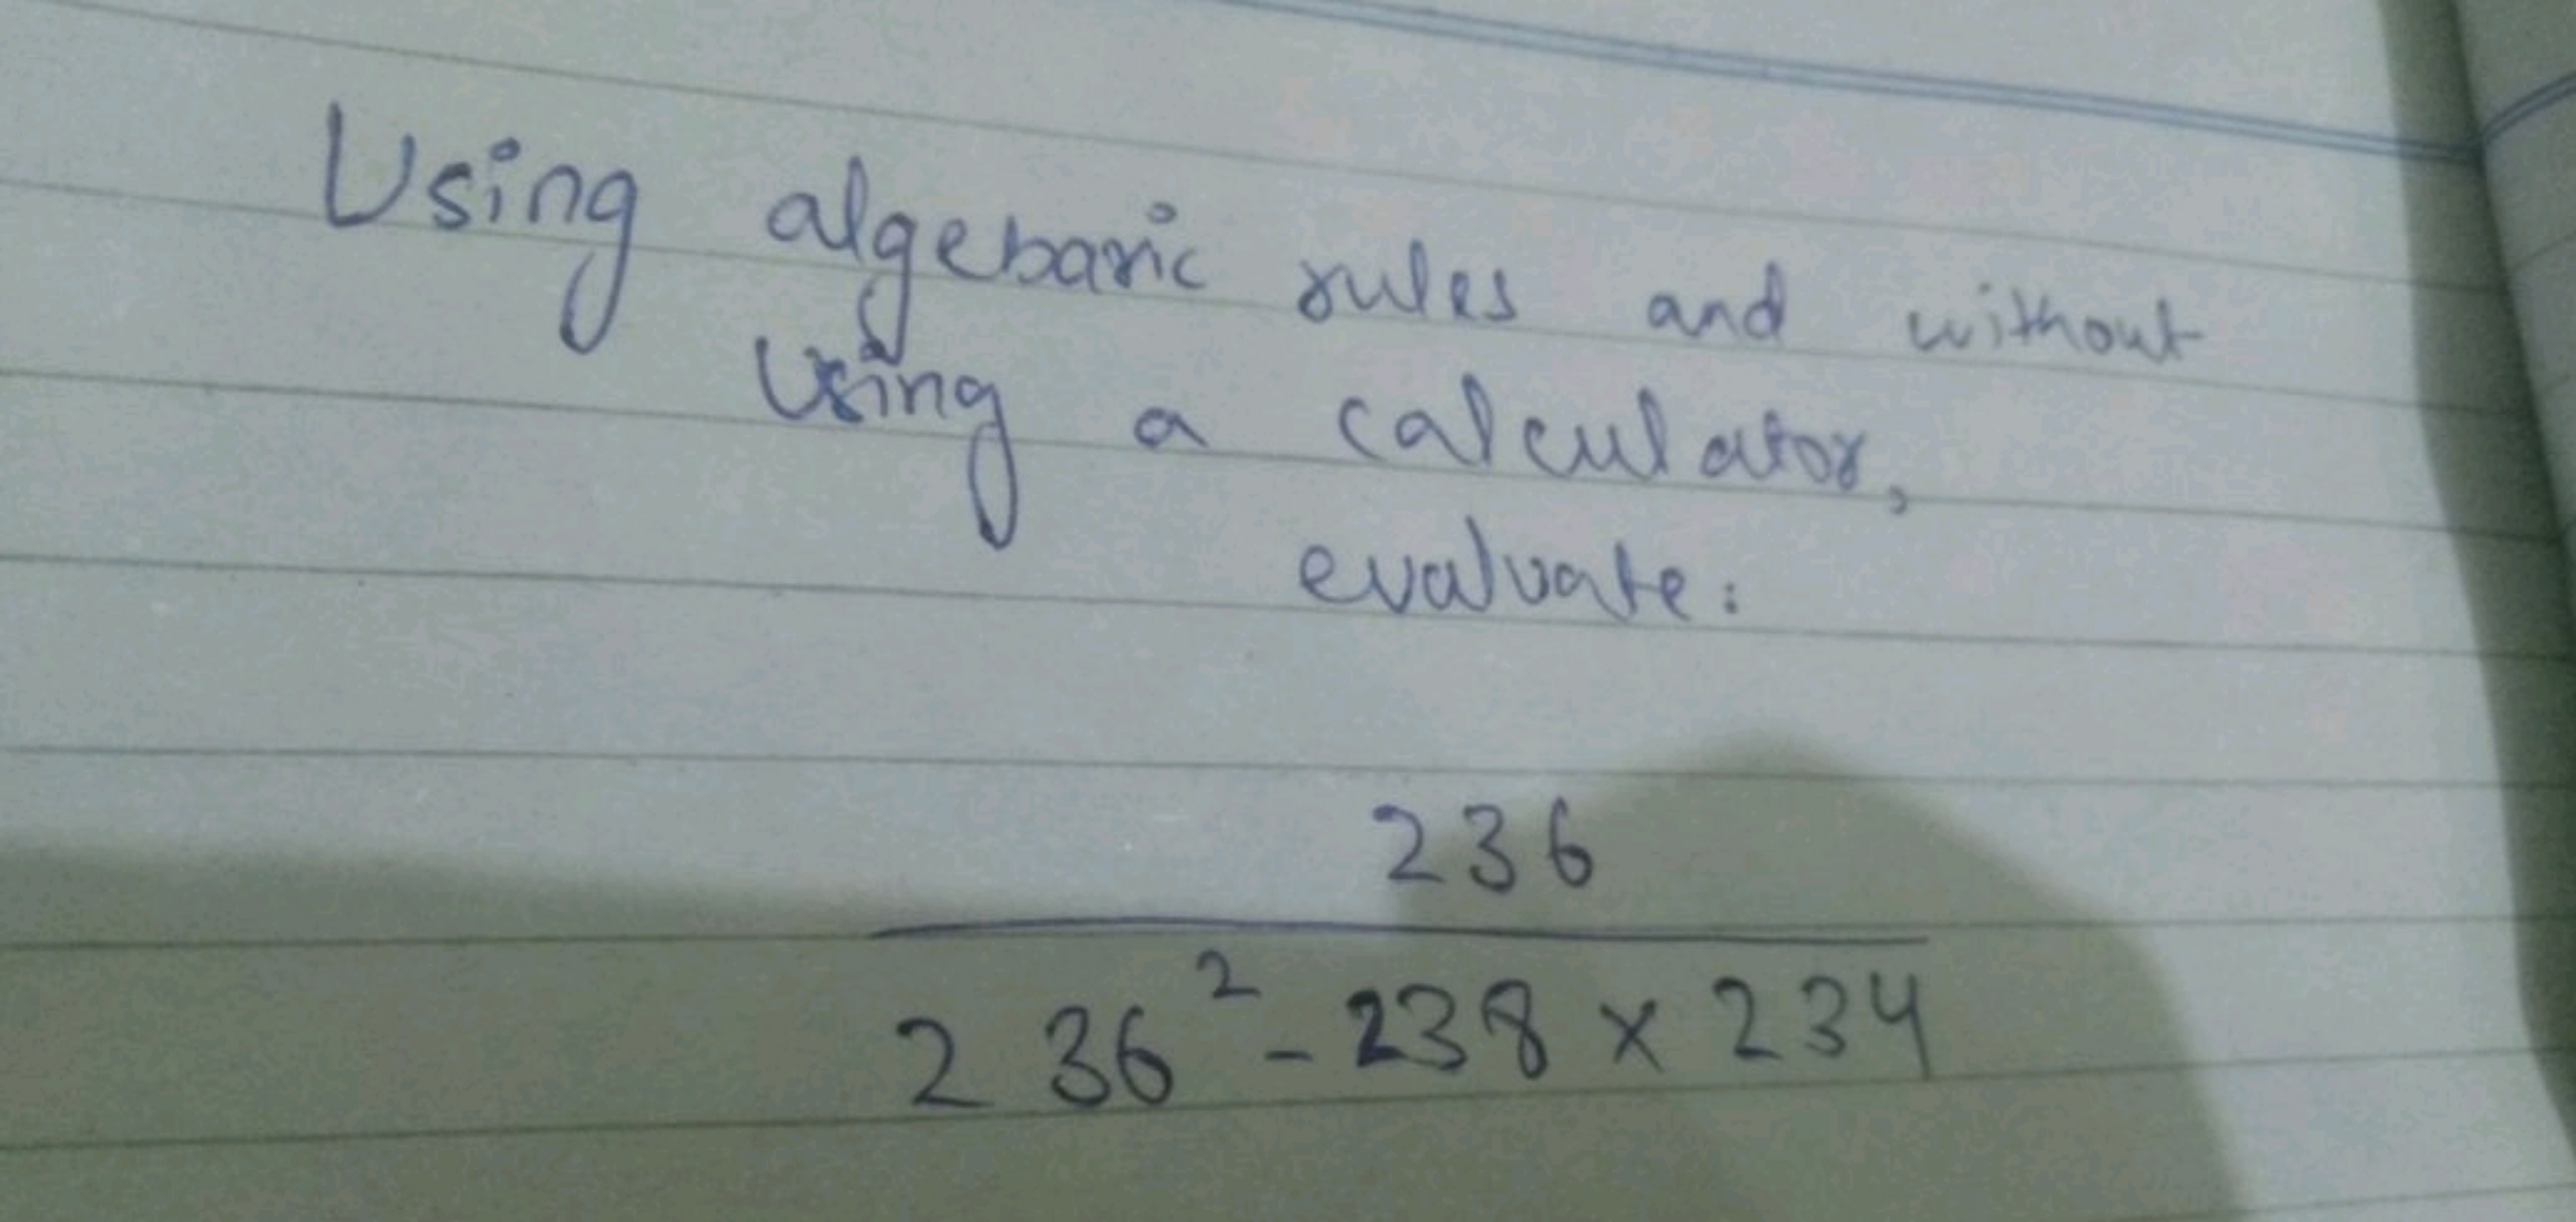 Using algebaric rules and without
using a calculator,
evaluate:
236
236² - 238 x 234